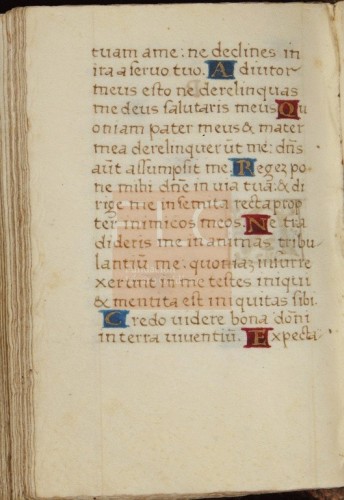 tuam a me: ne declines in
ira a seruo tuo. Adiutor
meus esto ne derelinquas
me deus salutaris meus Qu
oniam pater meus & mater
mea derelinquerūt me: dn̄s
aūt assumpsit me. Rege po-
ne mihi dn̄e in uia tua: & di
rige me in semita recta prop
ter inimicos meos. Ne tra
dideris me in animas tribu-
lantiū me: quoniaz insurre
xerunt in me testes iniqui
& mentita est iniquitas sibi.
Credo uidere bona dom̄i
in terra uiuentiū. Expecta